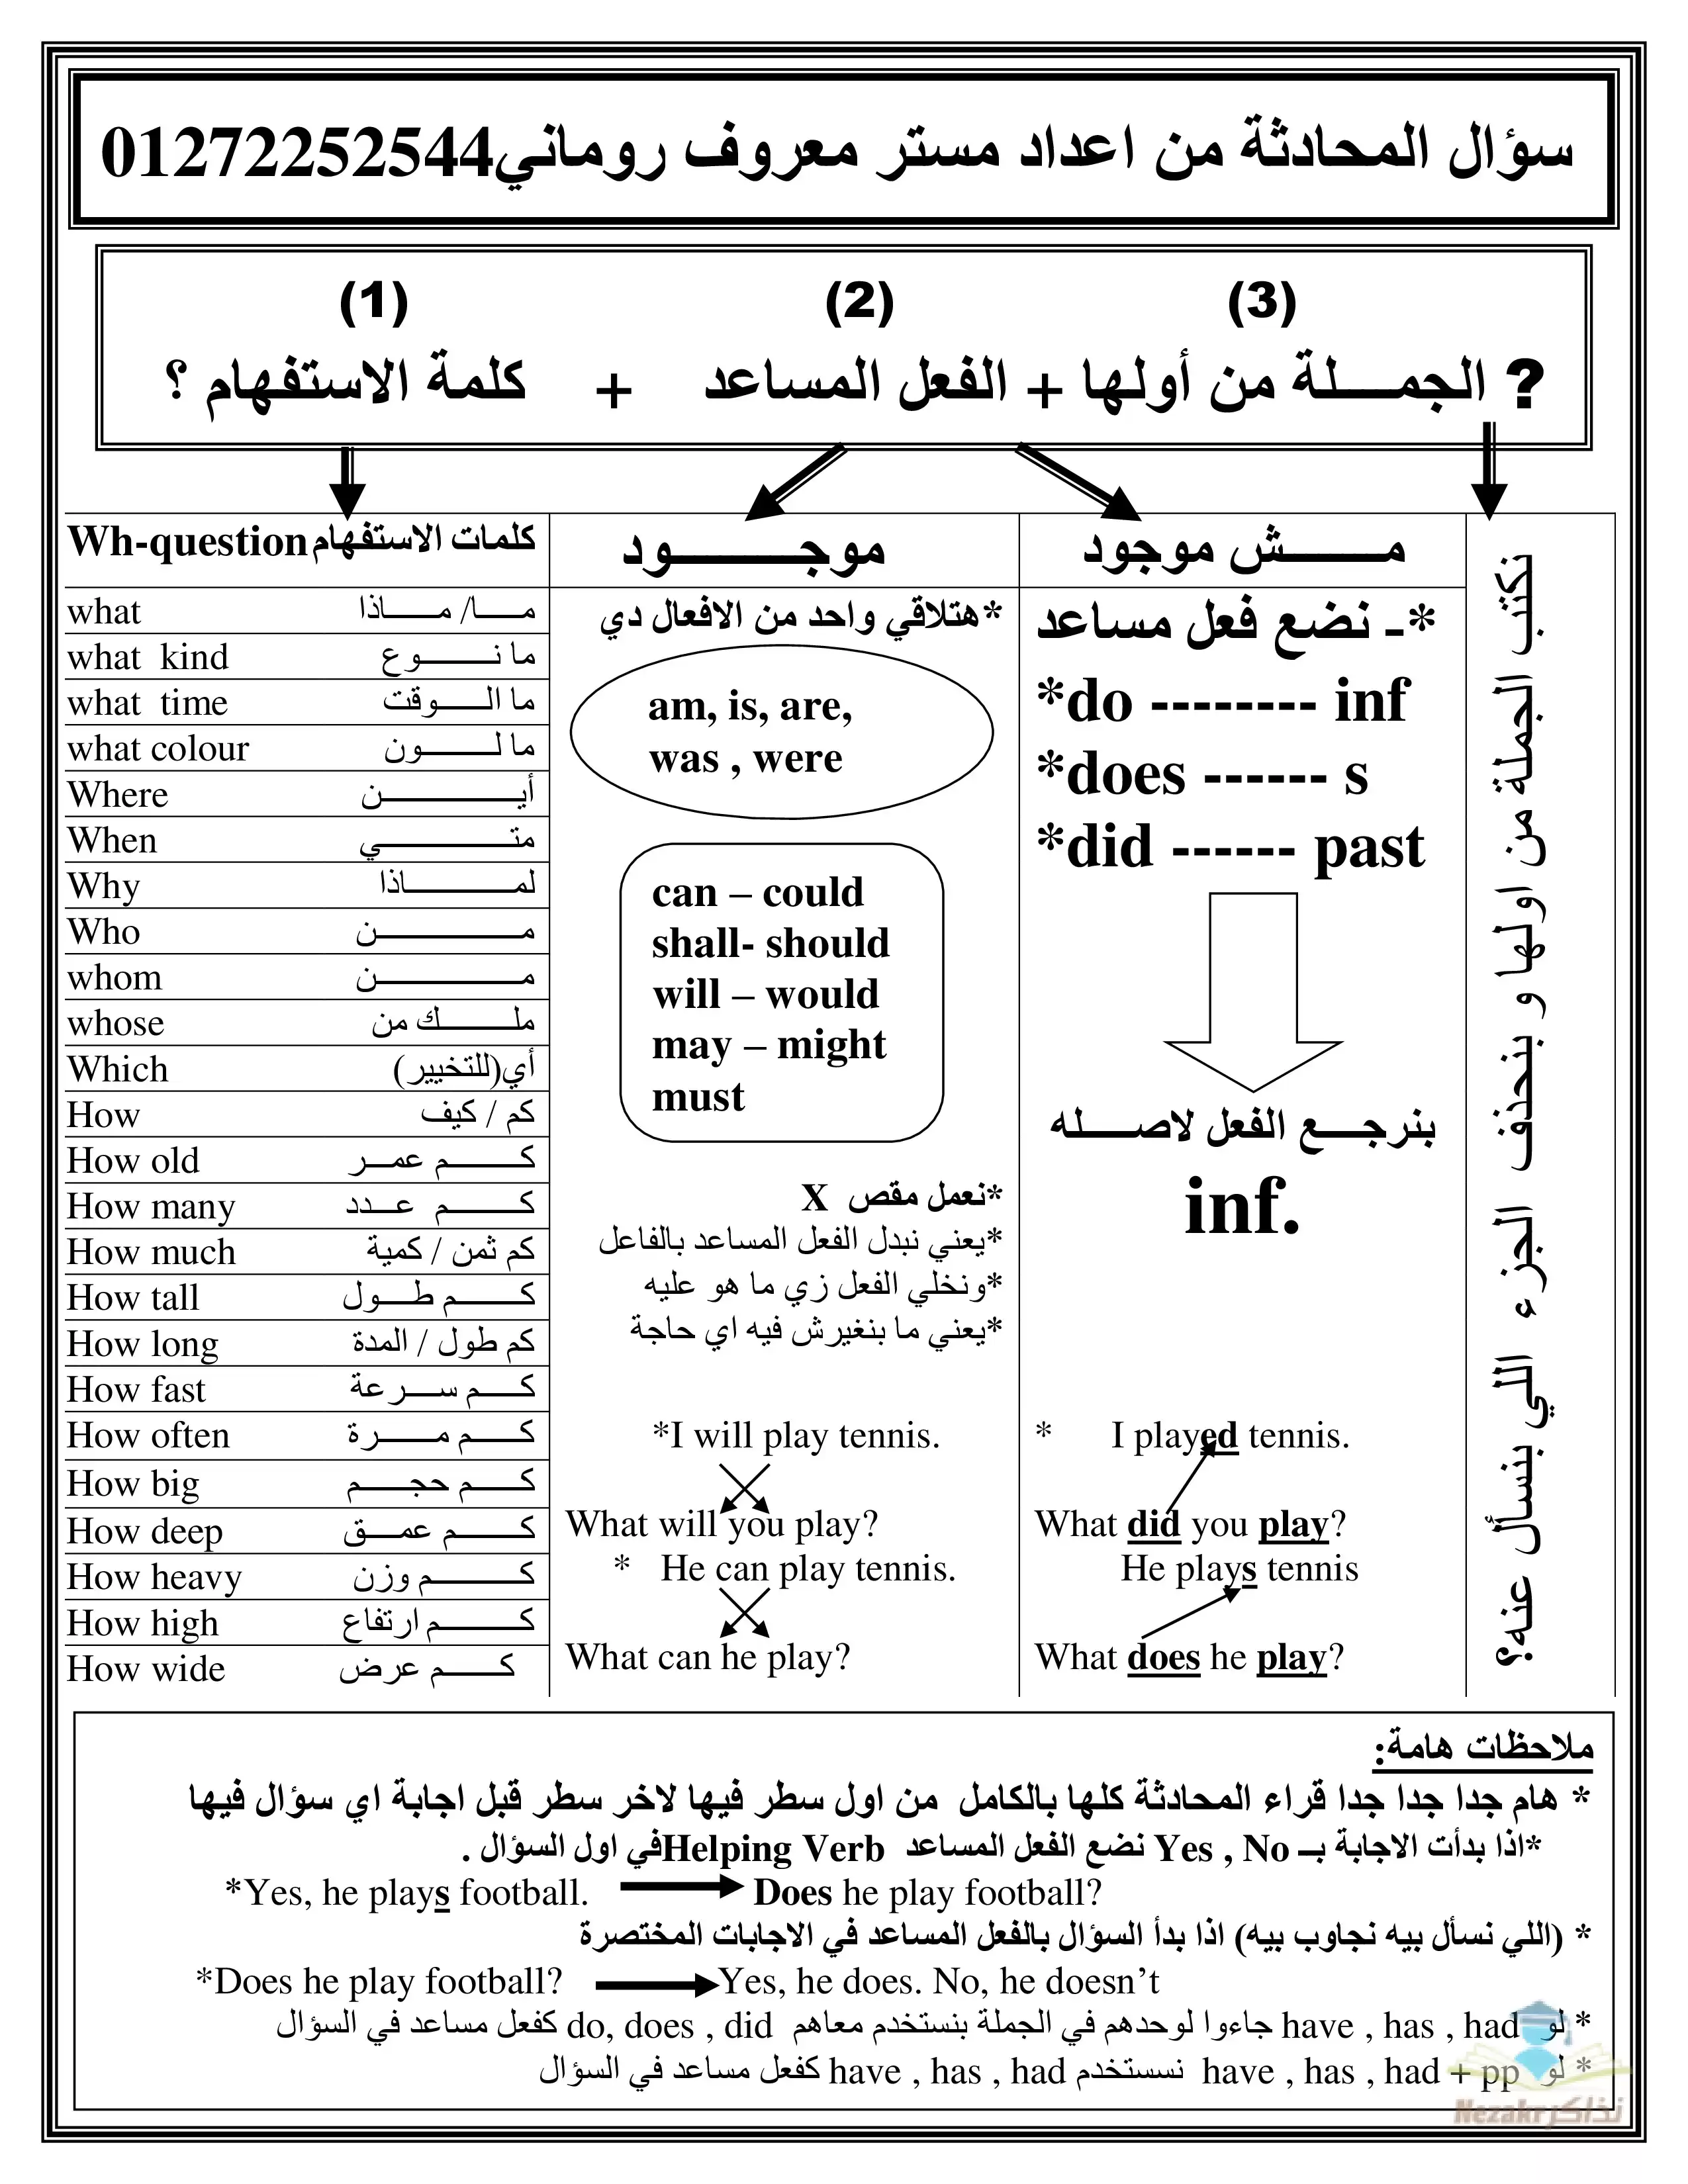 سؤال المحادثة من اعداد مستر معروف روماني01272252544
(1) (2) (3)
كلمة الاستفهام ؟ + الفعل المساعد + الجمـــلة من أولها ?
Wh-question كلمات الاستفهام
what مـــا/ مـــاذا
what kind ما نـــــوع
what time ما الـــــوقت
what colour ما لـــــون
Where أيـــــــن
When متـــــــي
Why لمـــــــاذا
Who مـــــــن
whom مـــــــن
whose ملـــــك من
Which أي(للتخيير)
How كم / كيف
How old كـــــم عمـــر
How many كـــــم عـــدد
How much كم ثمن / كمية
How tall كـــــم طـــول
How long كم طول / المدة
How fast كـــم ســـرعة
How often كـــم مـــــرة
How big كـــم حجـــــم
How deep كـــــم عمـــق
How heavy كـــــم وزن
How high كـــــم ارتفاع
How wide كـــــم عرض
موجـــــــود
*هتلاقي واحد من الافعال دي
am, is, are,
was , were
can – could
shall- should
will – would
may – might
must
*نعمل مقص X
*يعني نبدل الفعل المساعد بالفاعل
*ونخلي الفعل زي ما هو عليه
*يعني ما بنغيرش فيه اي حاجة
*I will play tennis.
What will you play?
* He can play tennis.
What can he play?
مـــــش موجود
*- نضع فعل مساعد
*do -------- inf
*does ------ s
*did ------ past
بنرجـــع الفعل لاصـــله
inf.
* I played tennis.
What did you play?
He plays tennis
What does he play?
نكتب الجملة من اولها و بنحذف الجزء اللي بنسأل عنه؟
ملاحظات هامة:
* هام جدا جدا جدا قراء المحادثة كلها بالكامل من اول سطر فيها لاخر سطر قبل اجابة اي سؤال فيها
*اذا بدأت الاجابة بـ Yes , No نضع الفعل المساعد Helping Verbفي اول السؤال .
*Yes, he plays football. Does he play football?
* (اللي نسأل بيه نجاوب بيه) اذا بدأ السؤال بالفعل المساعد في الاجابات المختصرة
*Does he play football? Yes, he does. No, he doesn’t
* لو have , has , had جاءوا لوحدهم في الجملة بنستخدم معاهم do, does , did كفعل مساعد في السؤال
* لو have , has , had + pp نستخدم have , has , had كفعل مساعد في السؤال
Nezakr نذاكر